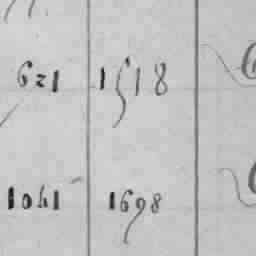 621 1518
1041 1698